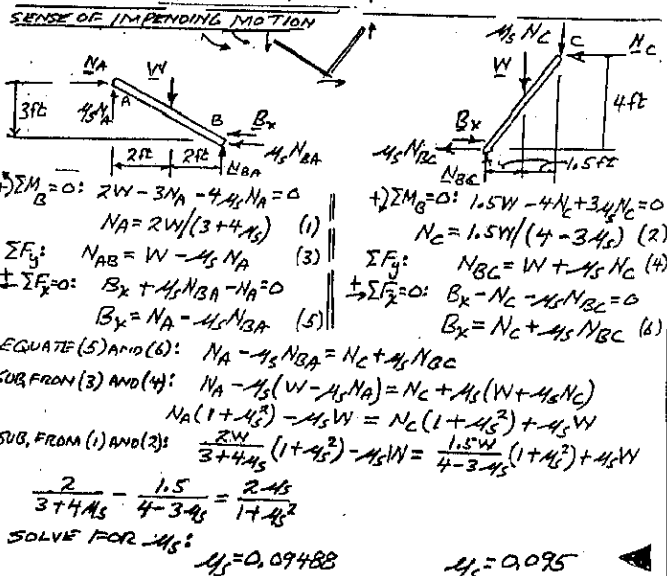 SENSE OF IMPENDING MOTION
N_A
W
3ft
μ_s N_A
A
B
B_x
μ_s N_BA
2ft
2ft
N_BA
μ_s N_C
C
N_C
W
4ft
B_x
μ_s N_BC
N_BC
1.5ft
+)ΣM_B=0: 2W-3N_A-4μ_s N_A=0
N_A=2W/(3+4μ_s) (1)
ΣF_y: N_AB=W-μ_s N_A (3)
+→ΣF_x=0: B_x+μ_s N_BA-N_A=0
B_x=N_A-μ_s N_BA (5)
+)ΣM_B=0: 1.5W-4N_C+3μ_s N_C=0
N_C=1.5W/(4-3μ_s) (2)
ΣF_y: N_BC=W+μ_s N_C (4)
+→ΣF_x=0: B_x-N_C-μ_s N_BC=0
B_x=N_C+μ_s N_BC (6)
EQUATE (5) AND (6): N_A-μ_s N_BA=N_C+μ_s N_BC
SUB, FROM (3) AND (4): N_A-μ_s(W-μ_s N_A)=N_C+μ_s(W+μ_s N_C)
N_A(1+μ_s²)-μ_s W=N_C(1+μ_s²)+μ_s W
SUB, FROM (1) AND (2): 2W/(3+4μ_s) (1+μ_s²)-μ_s W=1.5W/(4-3μ_s) (1+μ_s²)+μ_s W
2/(3+4μ_s) - 1.5/(4-3μ_s) = 2μ_s/(1+μ_s²)
SOLVE FOR μ_s:
μ_s=0.09488 μ_s=0.095